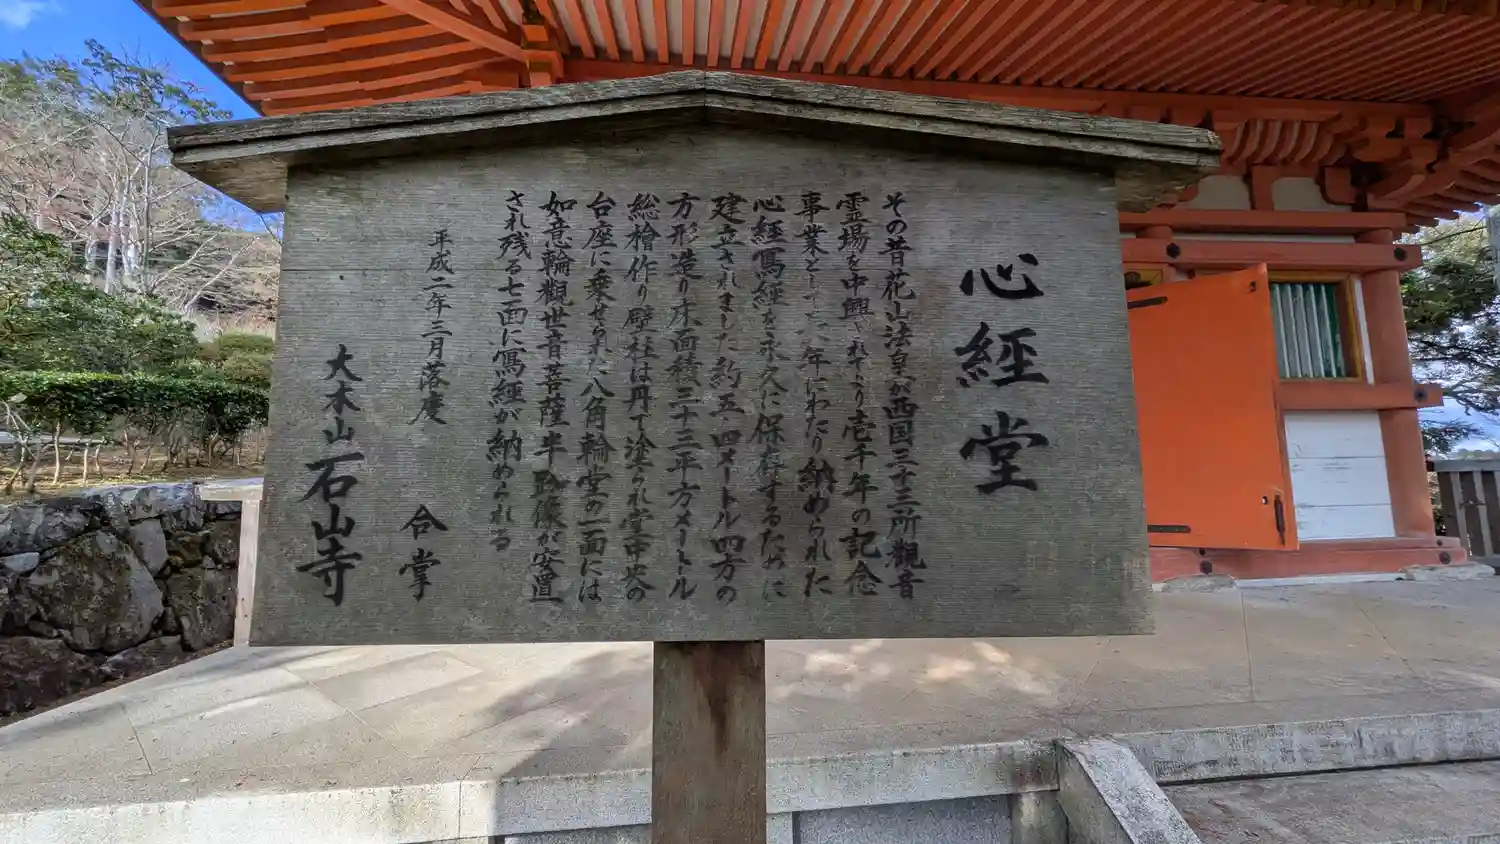 心経堂
その昔花山法皇が西国三十三所觀音
霊場を中興されてより壱千年の記念
事業として八年にわたり納められた
心経寫経を永久に保存するために
建立されました 約五 四メートル四方の
方形造り床面積三十三平方メートル
総檜作り壁柱は丹で塗られ堂中央の
台座に乗せられた八角輪堂の一面には
如意輪觀世音菩薩半跏像が安置
され残る七面に寫経が納められる
平成二年三月落慶
合掌
大本山石山寺